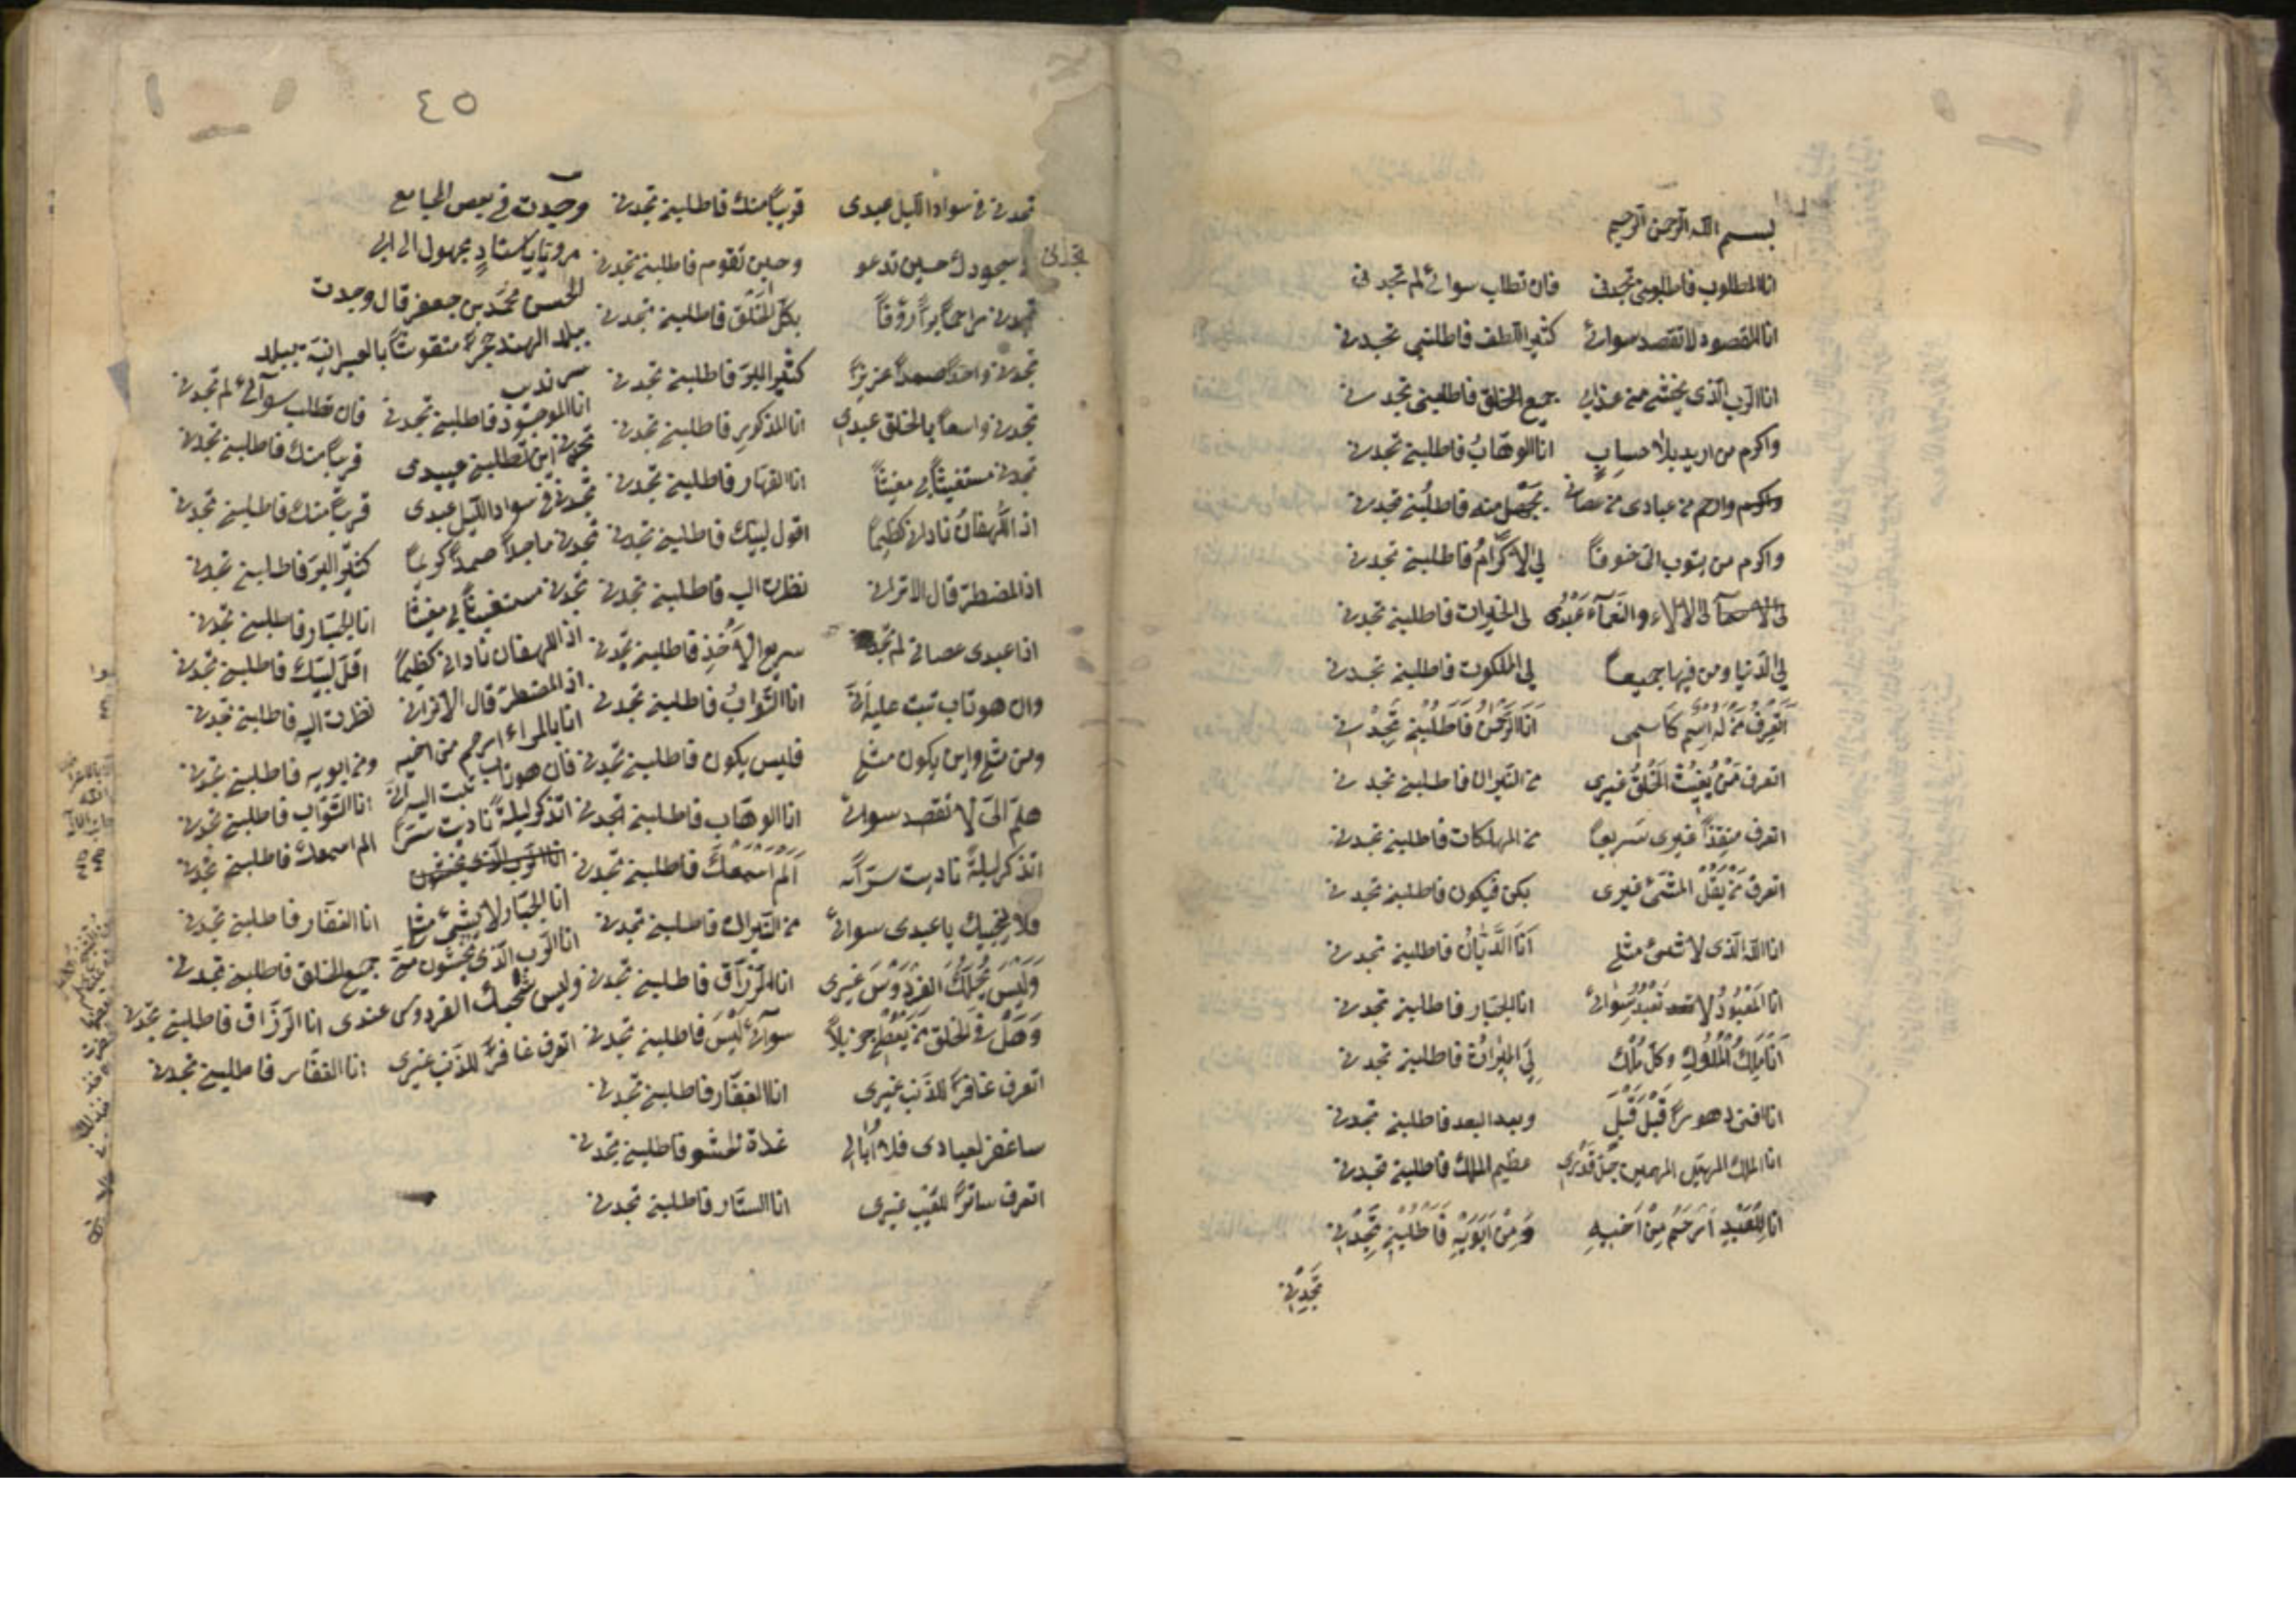 بسم الله الرحمن الرحيم
انا المطلوب فاطلبنى تجدنى فان تطلب سوائى لم تجدنى
انا المقصود لا تقصد سوائى كثير اللطف فاطلبنى تجدنى
انا الرب الذى يخشى من عذابى جميع الخلق فاطلبنى تجدنى
واكرم من اريد بلا حساب انا الوهاب فاطلبنى تجدنى
وارحم من عبادى من عصانى بجهل منه فاطلبنى تجدنى
واكرم من يتوب الى خوفاً لى الاكرام فاطلبنى تجدنى
لى الالاء والنعماء عبدى لى الخيرات فاطلبنى تجدنى
لى الدنيا ومن فيها جميعاً لى الملكوت فاطلبنى تجدنى
اتعرف من له اسم كاسمى انا الرحمن فاطلبنى تجدنى
اتعرف من يغيث الخلق غيرى من النيران فاطلبنى تجدنى
اتعرف منقذاً غيرى سريعاً من المهلكات فاطلبنى تجدنى
اتعرف من يقل للشئ غيرى بكن فيكون فاطلبنى تجدنى
انا الله الذى لا شئ مثلى انا الديان فاطلبنى تجدنى
انا المعبود لا تعبد سوائى انا الجبار فاطلبنى تجدنى
انا ملك الملوك وكل ملك لى الميراث فاطلبنى تجدنى
انا افنى دهوراً قبل قبل وبعد البعد فاطلبنى تجدنى
انا الملك المهيمن جل قدرى عظيم الملك فاطلبنى تجدنى
انا للعبد ارحم من اخيه ومن ابويه فاطلبنى تجدنى
تجدنى
٤٥
تجدنى فى سواد الليل عبدى قريباً منك فاطلبنى تجدنى
سجودك حين تدعو وحين تقوم فاطلبنى تجدنى
تجدنى راحماً براً رؤفاً بكل الخلق فاطلبنى تجدنى
تجدنى واحداً صمداً عزيزاً كثير البر فاطلبنى تجدنى
تجدنى واسعاً بالخلق عبدى انا المذكور فاطلبنى تجدنى
تجدنى مستغيثاً بى مغيثاً انا القهار فاطلبنى تجدنى
اذا اللهفان نادانى كظيماً اقول لبيك فاطلبنى تجدنى
اذا المضطر قال الا ترانى نظرت اليه فاطلبنى تجدنى
اذا عبدى عصانى لم تجد سريع الاخذ فاطلبنى تجدنى
وان هو تاب تبت عليه انى انا التواب فاطلبنى تجدنى
ومن مثلى واين يكون مثلى فليس يكون فاطلبنى تجدنى
هلم الى لا تقصد سوائى انا الوهاب فاطلبنى تجدنى
اتذكر ليلة ناديت سراً الم اسمعك فاطلبنى تجدنى
فلا ينجيك يا عبدى سوائى من النيران فاطلبنى تجدنى
وليس يحلك الفردوس غيرى انا الرزاق فاطلبنى تجدنى
وهل فى الخلق من يعطى جزيلاً سوائى ليس فاطلبنى تجدنى
اتعرف غافراً للذنب غيرى انا الغفار فاطلبنى تجدنى
ساغفر لعبادى فلا ابالى غداة الحشر فاطلبنى تجدنى
اتعرف ساتراً للعيب غيرى انا الستار فاطلبنى تجدنى
وجدت فى بعض المجامع
مرويا باسناد مجهول الى ابى
الحسن محمد بن جعفر قال وجدت
ببلاد الهند حجراً منقوشاً بالعبرانية ببلد
سرنديب
انا الموجود فاطلبنى تجدنى فان تطلب سوآئى لم تجدنى
تجدنى اين تطلبنى عبيدى قريباً منك فاطلبنى تجدنى
تجدنى فى سواد الليل عبدى قريباً منك فاطلبنى تجدنى
تجدنى ماجداً صمداً كريماً كثير البر فاطلبنى تجدنى
تجدنى مستغيثاً بى مغيثاً انا الجبار فاطلبنى تجدنى
اذا اللهفان نادانى كظيماً اقل لبيك فاطلبنى تجدنى
اذا المضطر قال الا ترانى نظرت اليه فاطلبنى تجدنى
انا بالمراء ارحم من اخيه ومن ابويه فاطلبنى تجدنى
فان هو تاب تبت اليه انى انا التواب فاطلبنى تجدنى
اتذكر ليلة ناديت سراً الم اسمعك فاطلبنى تجدنى
انا الجبار لا شئ مثلى انا الغفار فاطلبنى تجدنى
انا الرب الذى يخشون منى جميع الخلق فاطلبنى تجدنى
وليس الفردوس عندى انا الرزاق فاطلبنى تجدنى
اتعرف غافراً للذنب غيرى انا الغفار فاطلبنى تجدنى